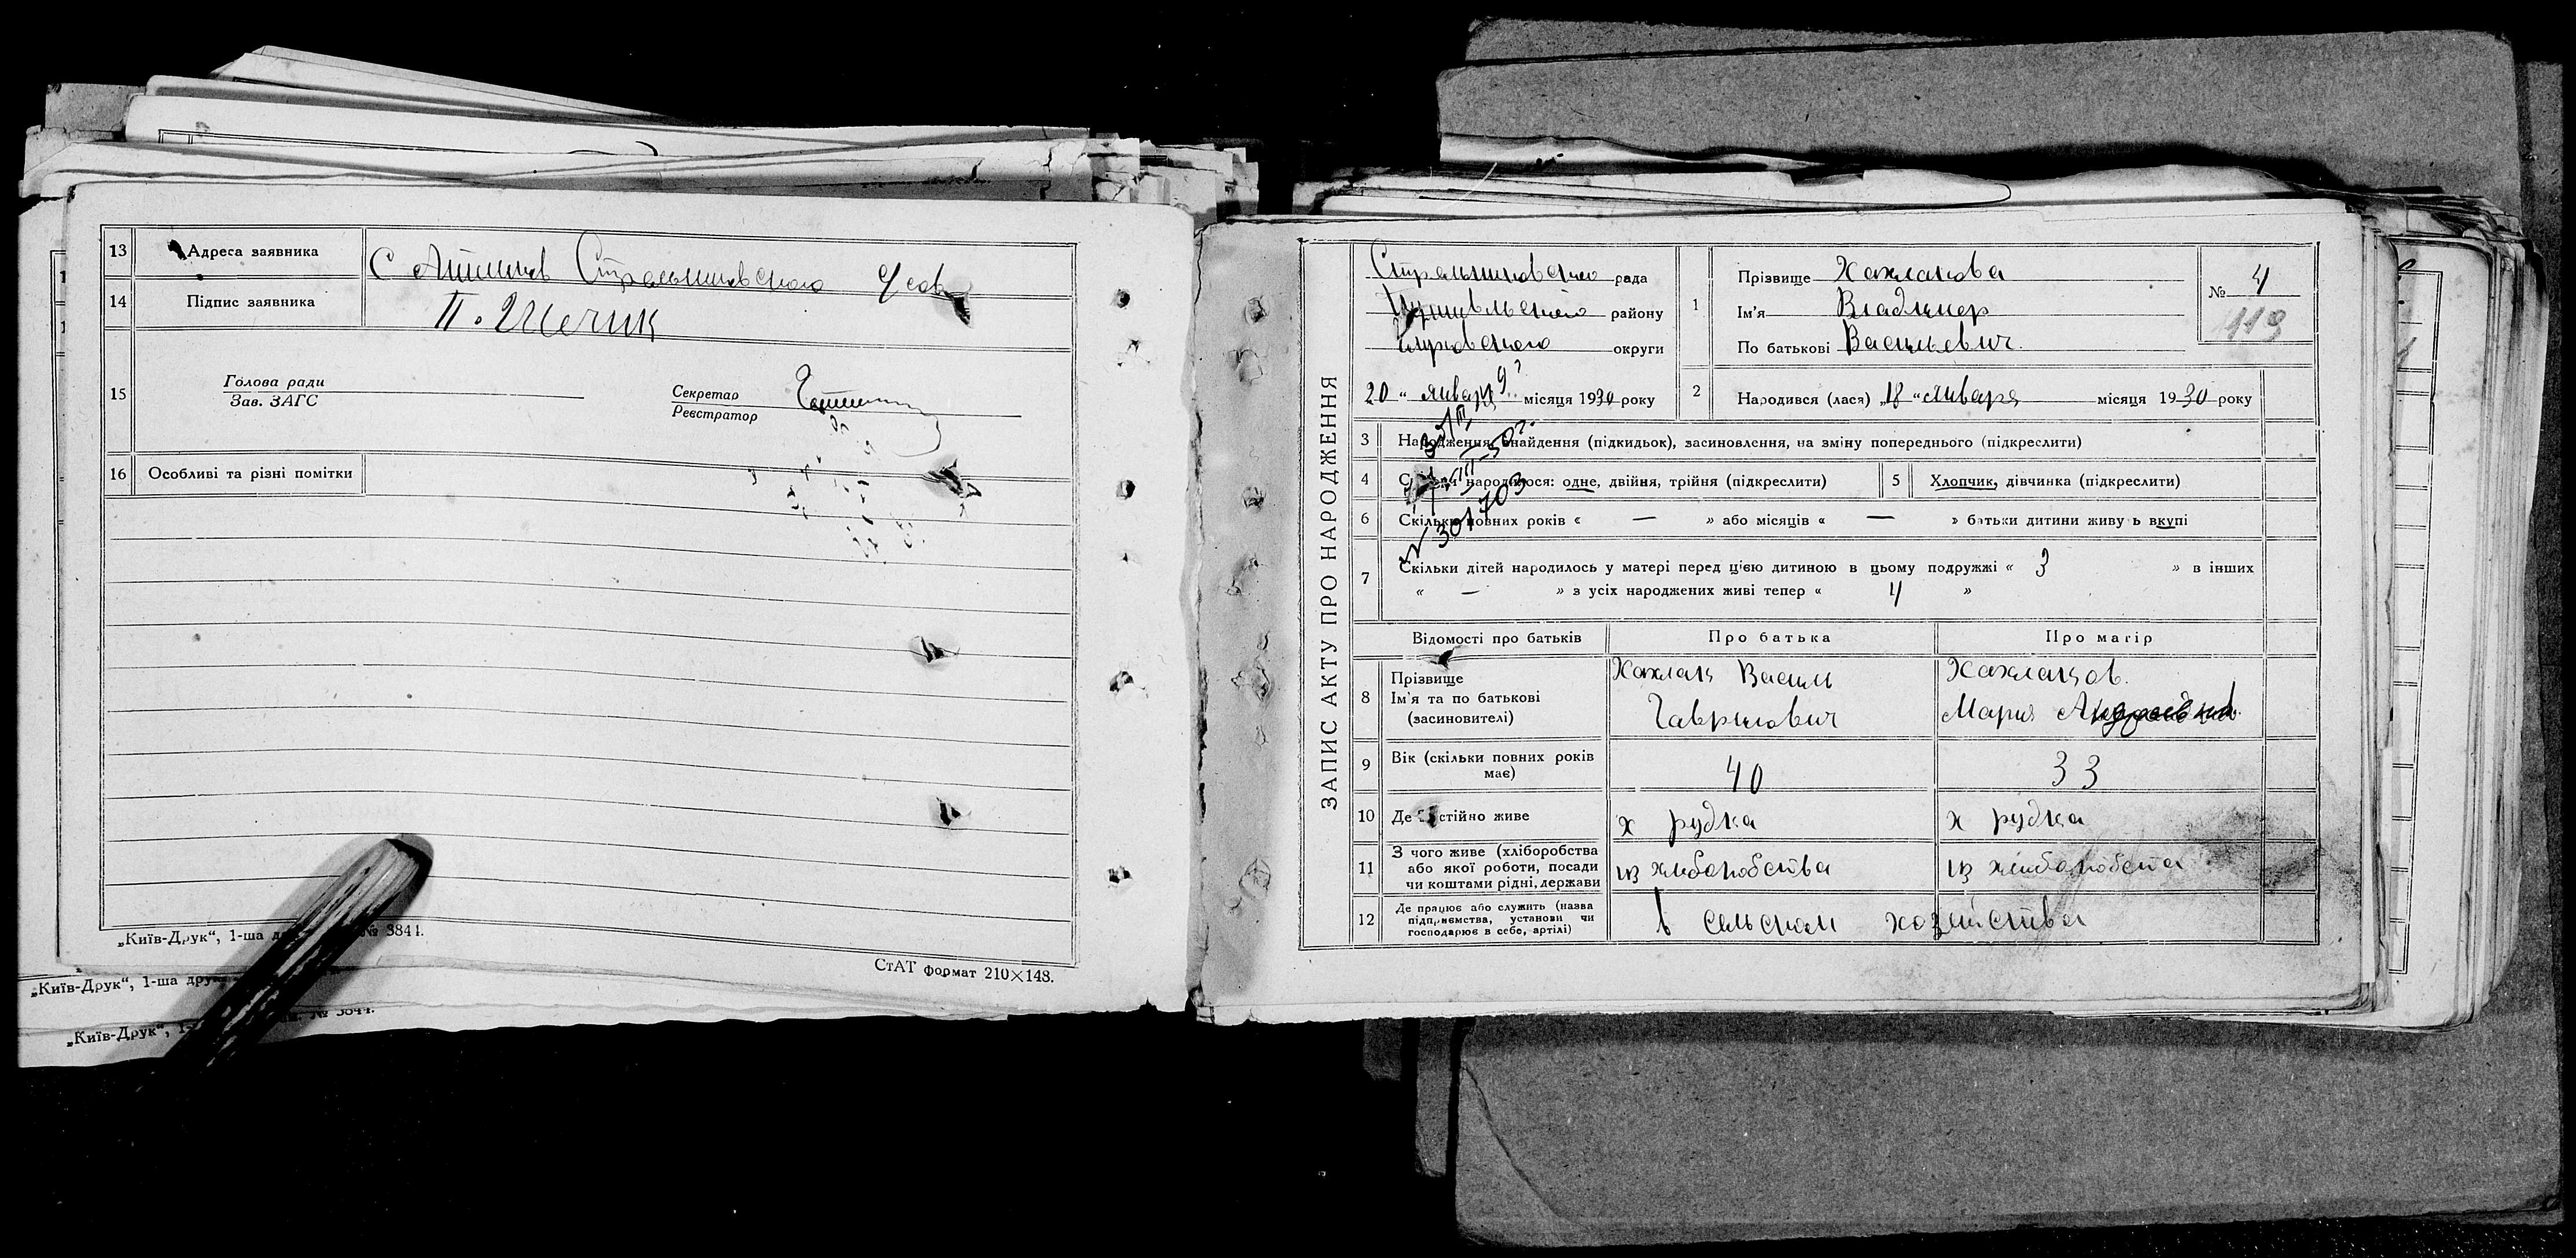 13 Адреса заявника С Стрельниковского
14 Підпис заявника П. Шечик
15 Голова ради
Зав. ЗАГС
Секретар
Реєстратор
16 Особливі та різні помітки
„Київ-Друк“, 1-ша № 3844.
СтАТ формат 210×148.
„Київ-Друк“, 1-ша друк
„Київ-Друк“, № 3844.
ЗАПИС АКТУ ПРО НАРОДЖЕННЯ
Стрельниковского рада
району
Глуховского округи
20 „ января місяця 1930 року
1 Прізвище Хахлакова
Ім'я Владимер
По батькові Васильевич
№ 4
119
2 Народився (лася) „18 “ января місяця 1930 року
3 Народження, знайдення (підкидьок), засиновлення, на зміну попереднього (підкреслити)
4 народилося: одне, двійня, трійня (підкреслити)
5 Хлопчик, дівчинка (підкреслити)
№ 301703
6 Скільки повних років « — » або місяців « — » батьки дитини живуть вкупі
7 Скільки дітей народилось у матері перед цією дитиною в цьому подружжі « 3 » в інших
« — » з усіх народжених живі тепер « 4 »
Відомості про батьків Про батька Про матір
8 Прізвище
Ім'я та по батькові
(засиновителі)
Хахлак Василь
Гаврилович
Мария Андреевна
9 Вік (скільки повних років
має)
40 33
10 Де постійно живе х рудка х рудка
11 З чого живе (хліборобства
або якої роботи, посади
чи коштами рідні, держави
из хлеборобства из хлиборобства
12 Де працює або служить (назва
підприємства, установи чи
господарює в себе, артілі)
в сельском хозяиства